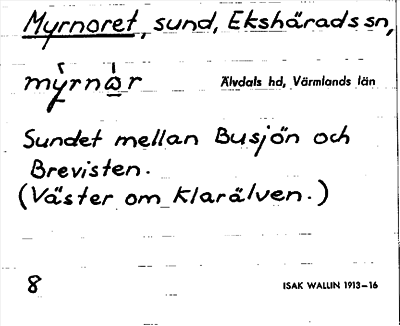 Myrnoret, sund, Ekshärads sn,
myrnor Älvdals hd, Värmlands län
Sundet mellan Busjön och
Brevisten.
(Väster om Klarälven.)
8 ISAK WALLIN 1913–16